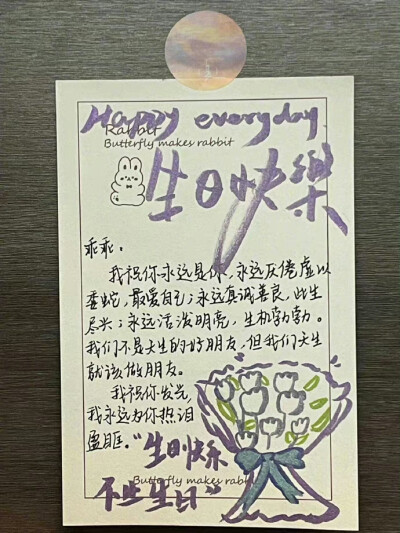 Happy everyday
Rabbit
Butterfly makes rabbit
生日快樂
乖乖：
我祝你永远是你，永远厌倦虚以
委蛇，最爱自己；永远真诚善良，此生
尽兴；永远活泼明亮，生机勃勃。
我们不是天生的好朋友，但我们天生
就该做朋友。
我祝你发光，
我永远为你热泪
盈眶。“生日快乐
不止生日”
Butterfly makes rabbit